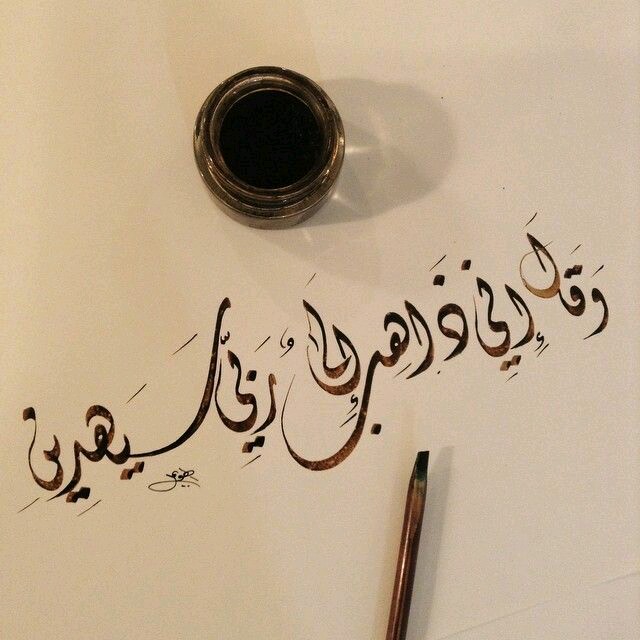 وَقَالَ إِنِّي ذَاهِبٌ إِلَىٰ رَبِّي سَيَهْدِينِ